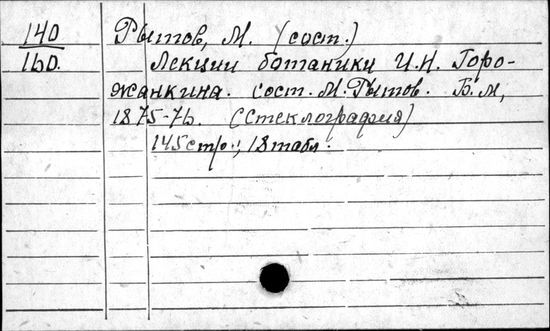 140 Рытов, М. (сост.)
160. Лекции ботаники И.Н. Горо-
жанкина. сост. М. Рытов. Б.м,
1875-76. (Стеклография)
145 стр., 18 табл.